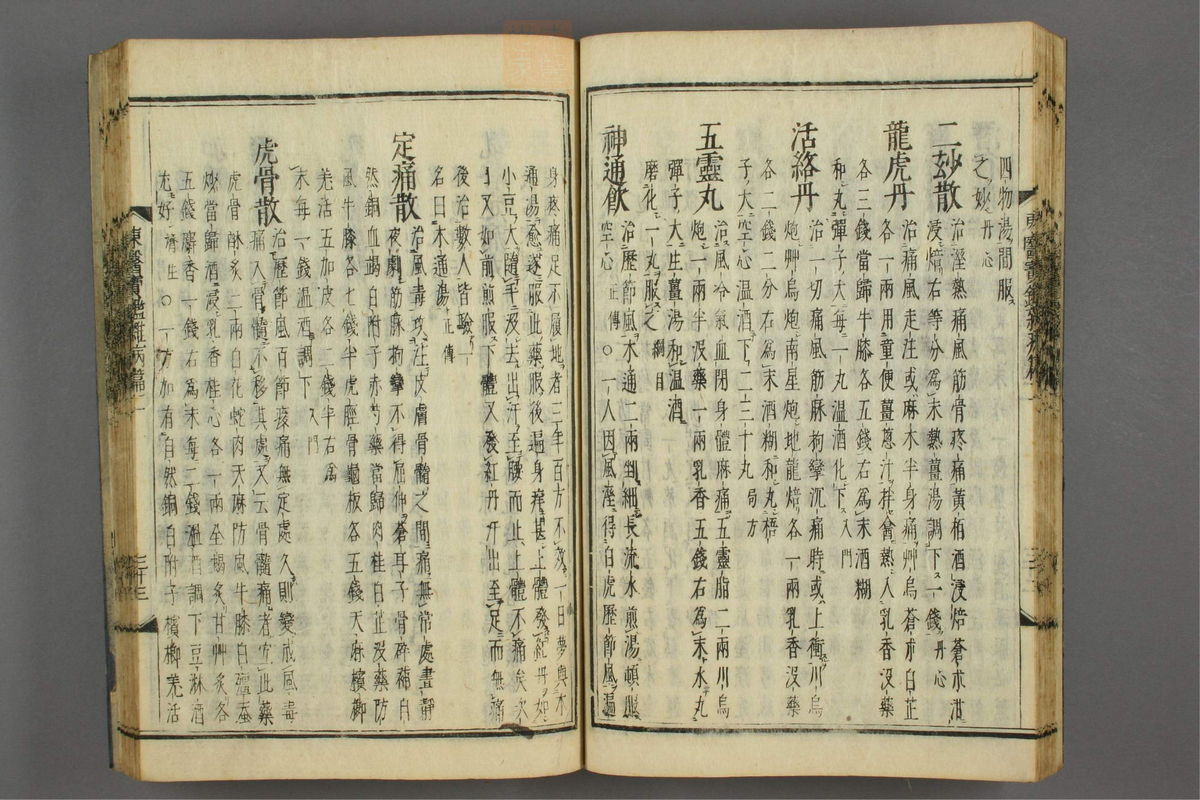 四物湯間服
之妙丹心
二玅散治溼熱痛風筋骨疼痛黃栢酒浸焙蒼朮泔
浸焙右等分爲末熱薑湯調下一錢丹心
龍虎丹治痛風走注或麻木半身痛艸烏蒼朮白芷
各一兩用童便薑蔥汁拌熱入乳香沒藥
各三錢當歸牛膝各五錢右爲末酒糊
和丸彈子大每一丸溫酒化下入門
活絡丹治一切痛風筋脉拘攣沉痛時或上衝川烏
炮艸烏炮南星炮地龍焙各一兩乳香沒藥
各二錢二分右爲末酒糊和丸梧
子大空心溫酒下二三十丸局方
五靈丸治風冷氣血閉身體麻痛五靈脂二兩川烏
炮一兩半沒藥一兩乳香五錢右爲末水丸
彈子大生薑湯和溫酒
磨化一丸服之綱目
神通飮治歷節風木通二兩剉細長流水煎湯頓服
空心正傳○一人因風溼得白虎歷節風遍
身疼痛足不履地者三年百方不效一日夢與木
通湯愈遂服此藥服後遍身痒甚上體發紅丹如
小豆大隨手沒去出汗至腰而止上體不痛矣次
日又如前煎服下體又發紅丹汗出至足而無痛
後治數人皆驗一
名曰木通湯正傳
定痛散治風毒攻注皮膚骨髓之間痛無常處晝靜
夜劇筋脉拘攣不得屈伸蒼耳子骨碎補自
然銅血竭白附子赤芍藥當歸肉桂白芷沒藥防
風牛膝各七錢半虎脛骨龜板各五錢天麻檳榔
羌活五加皮各二錢半右爲
末每一錢溫酒調下入門
虎骨散治歷節風百節疼痛無定處久則變成風毒
痛入骨髓不移其處又云骨髓痛者宜此藥
虎骨酥炙二兩白花蛇肉天麻防風牛膝白殭蚕
炒當歸酒浸乳香桂心各一兩全蝎炙甘艸炙各
五錢麝香一錢右爲末每二錢溫酒調下豆淋酒
尤好濟生○一方加有自然銅白附子檳榔羌活
東醫寶鑑雜病篇二
三十三